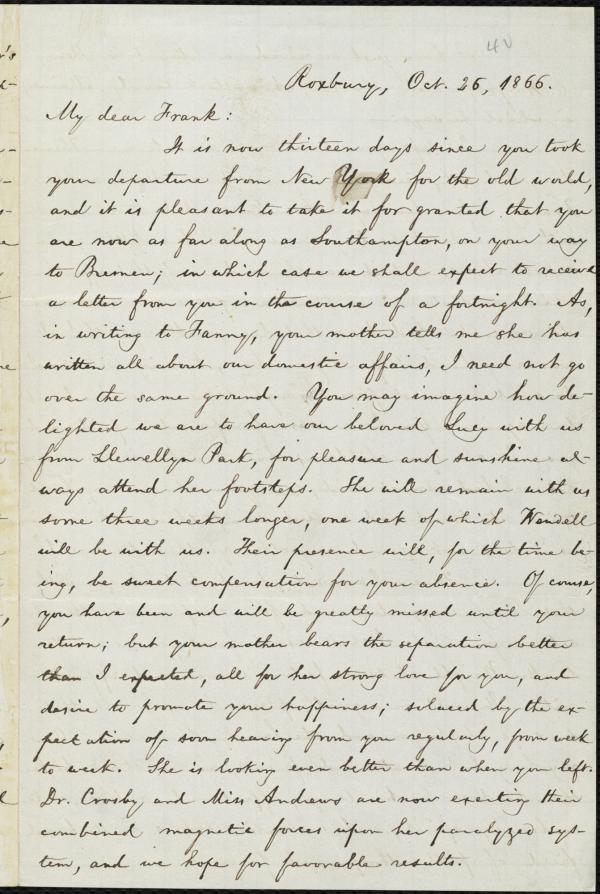 40
Roxbury, Oct. 26, 1866.
My dear Frank:
It is now thirteen days since you took
your departure from New York for the old world,
and it is pleasant to take it for granted that you
are now as far along as Southampton, on your way
to Bremen; in which case we shall expect to receive
a letter from you in the course of a fortnight. As,
in writing to Fanny, your mother tells me she has
written all about our domestic affairs, I need not go
over the same ground. You may imagine how de-
lighted we are to have our beloved Lucy with us
from Llewellyn Park, for pleasure and sunshine al-
ways attend her footsteps. She will remain with us
some three weeks longer, one week of which Wendell
will be with us. Their presence will, for the time be-
ing, be sweet compensation for your absence. Of course,
you have been and will be greatly missed until your
return; but your mother bears the separation better
than I expected, all for her strong love for you, and
desire to promote your happiness; solaced by the ex-
pectation of soon hearing from you regularly, from week
to week. She is looking even better than when you left.
Dr. Crosby and Miss Andrews are now exerting their
combined magnetic forces upon her paralyzed sys-
tem, and we hope for favorable results.